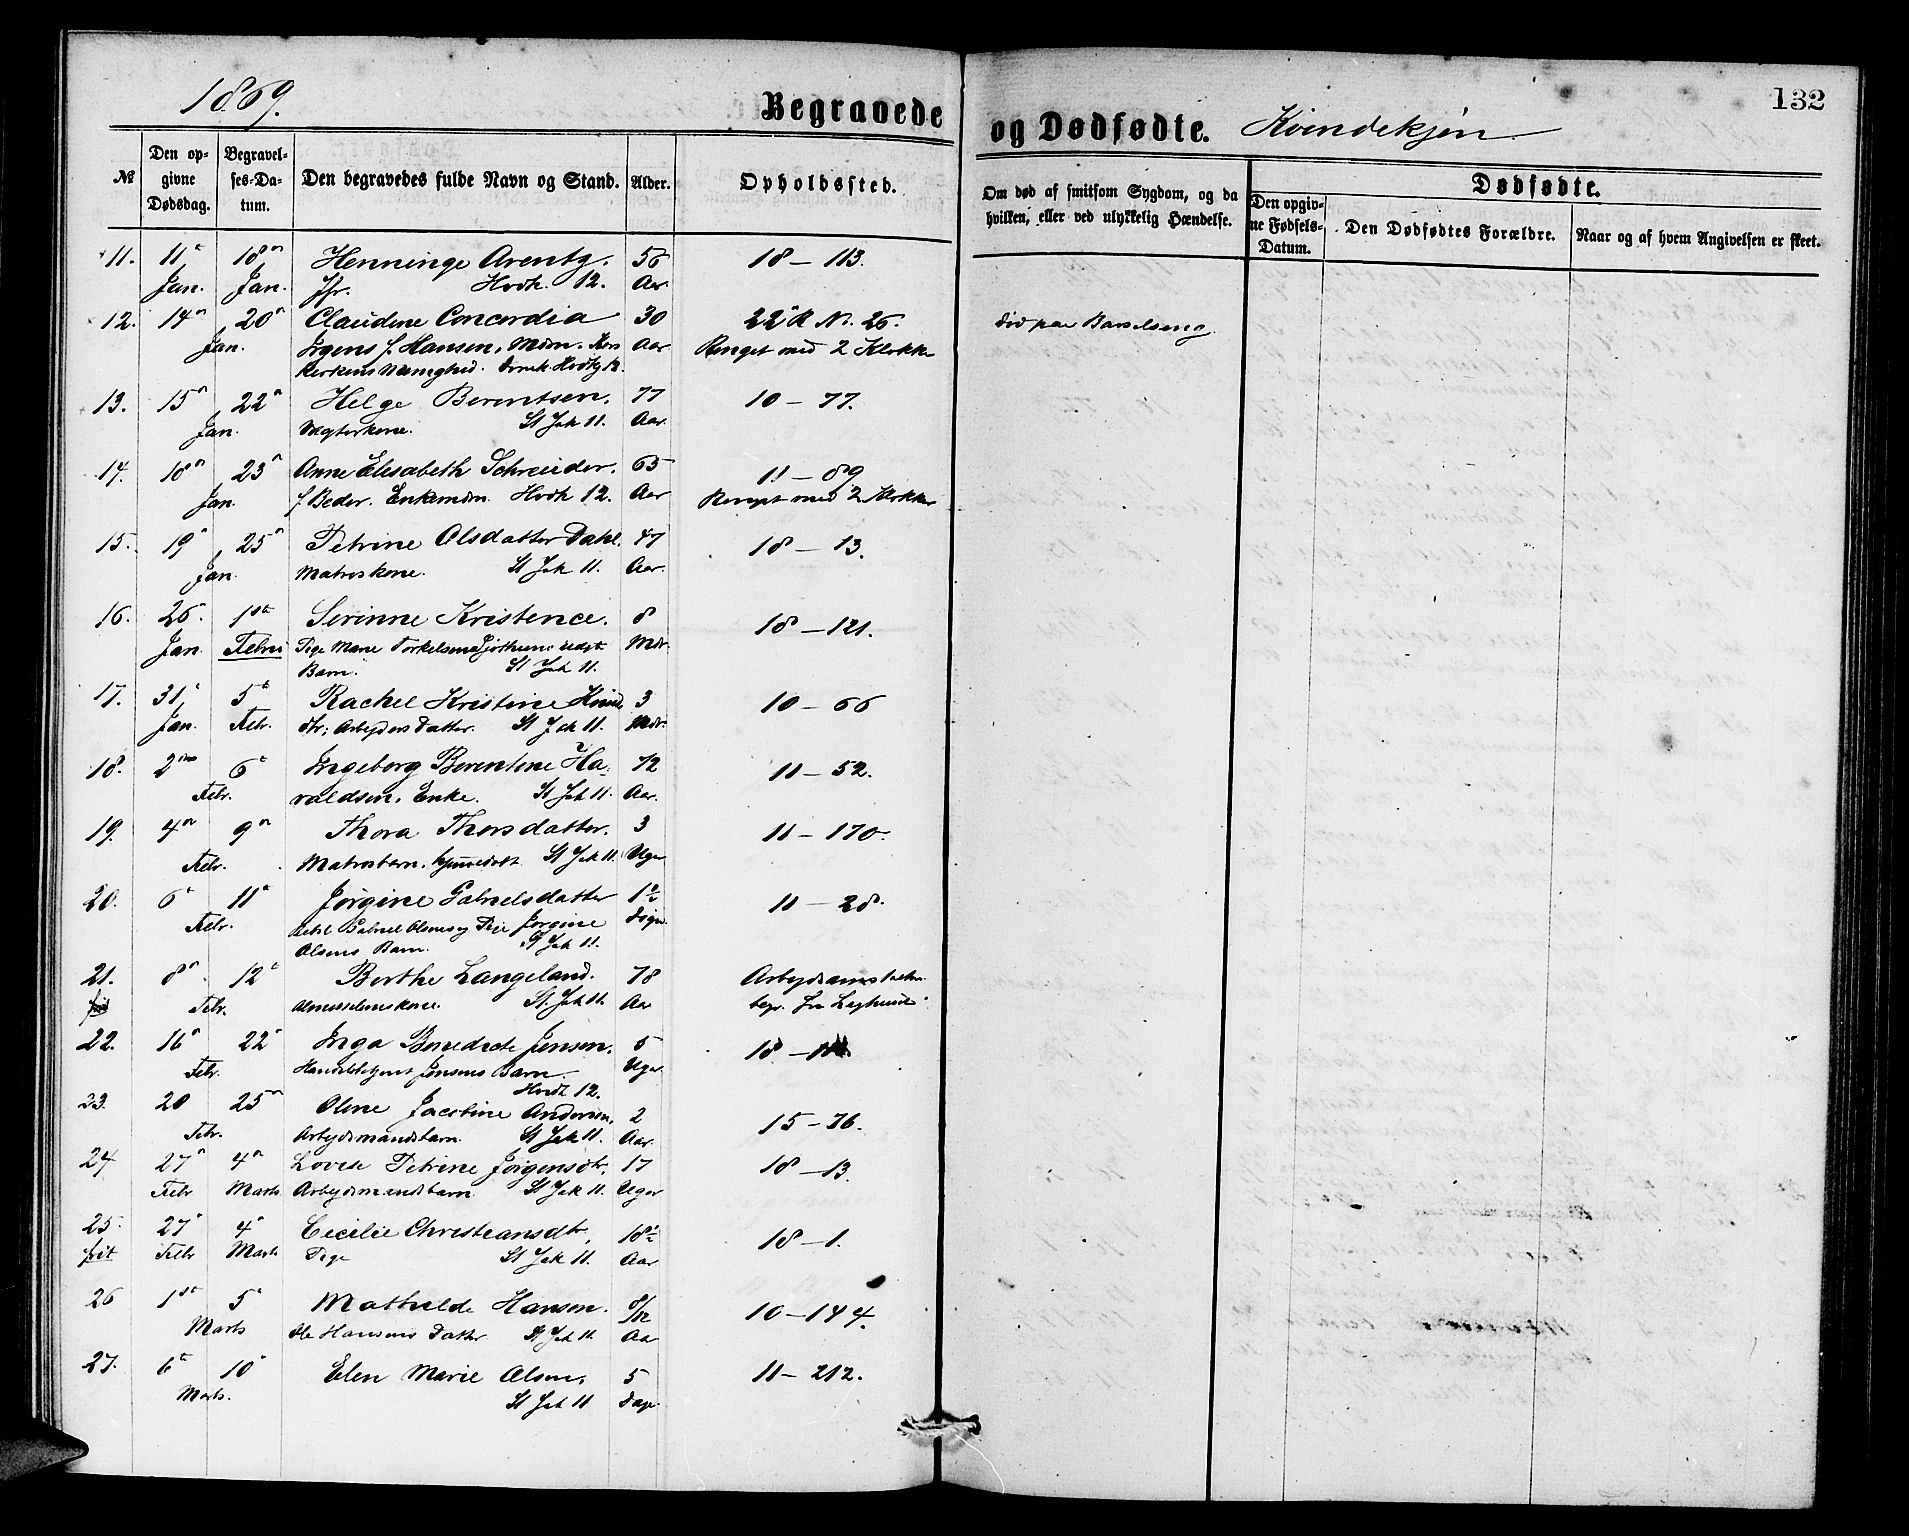 1869.
Begravede
og Dødfødte. Kvindekjøn
132
№
Den opgivne Dødsdag.
Begravelses-Datum.
Den begravedes fulde Navn og Stand.
Alder.
Opholdssted.
Om død af smitsom Sygdom, og da hvilken, eller ved ulykkelig Hændelse.
Dødfødte.
Den opgivne Fødsels-Datum.
Den Dødfødtes Forældre.
Naar og af hvem Angivelsen er skeet.
11. 11 18 Henninge Arentz. 56 18 – 113.
Jan. Jan. Jfr. Hvdk. 12. Aar.
12. 14 20 Claudine Concordia 30 22 R N. 26. død paa Barselseng
Jan. Irgens f. Hansen, Mdm. Aar Ringet med 2 Klokker
13. 15 22 Helge Berentsen. 77 10 – 77.
Jan. Vægterkone. St Jak 11. Aar.
14. 18 23 Anne Elisabeth Schreuder. 65 11 – 89
Jan. f Beder. Enkemdm. Hvdk 12. Aar Ringet med 2 Klokker
15. 19 25 Petrine Olsdatter Dahl. 47 18 – 13.
Jan. Matroskone. St Jak 11. Aar.
16. 26 1 Serinne Kristence. 8 18 – 121.
Jan. Febru Pige Marie Torkelsens uægt Mdr.
Barn. St Jak 11.
17. 31 5 Rachel Kristine 3 10 – 66
Jan. Febr. dtr; Arbeiders Datter. St Jak 11. Mdr.
18. 2 6 Ingeborg Berentine Ha- 72 11 – 52.
Febr. valdsen, Enke. St Jak 11. Aar.
19. 4 9 Thora Thorsdatter. 3 11 – 170.
Febr. Matrosbarn. hjemmedøbt St Jak 11. Uger
20. 6 11 Jørgine Gabrielsdatter 1½ 11 – 28.
Febr. Gabriel Olsens og Pige Jørgine Døgn
Olsens Barn. St Jak 11.
21. 8 12 Berthe Langeland. 78 Arbeidsanstalten
frit Febr. Almisselemskone. St. Jak 11 Aar begr. fra Lighuset
22. 16 22 Inga Benedicte Jensen. 5 18 –
Febr. Jensens Barn. Uger
Hvdk 12.
23. 20 25 Oline Jacobine Andersen, 2 15 – 76.
Febr. Arbeidsmandsbarn. St Jak 11. Aar.
24 27 4 Lovise Petrine Jørgensdtr. 17 18 – 13.
Febr Marts Arbeidsmandsbarn. St Jak 11. Uger
25. 27 4 Cecilie Christeansdtr, 18½ 18 – 1.
frit Febr Marts Pige St Jak 11. Aar
26 1 5 Mathilde Hansen. 8/12 10 – 144.
Marts Ole Hansens Datter St Jak 11 Aar
27. 6 10 Elen Marie Olsen, 5 11 – 212.
Marts. St Jak 11 Dage